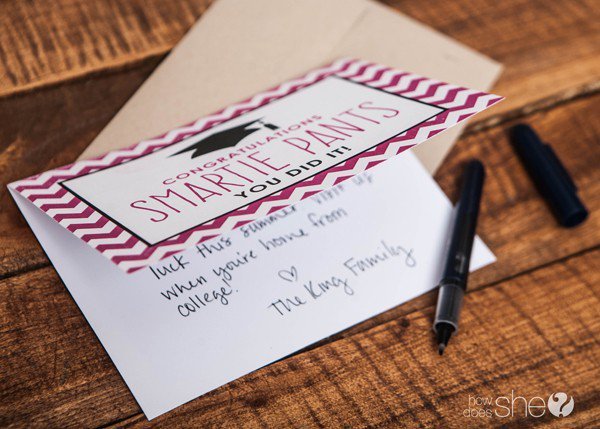 CONGRATULATIONS
SMARTIE PANTS
YOU DID IT!
luck this summer visit us
when you're home from
college!
♡
The King Family
how
does
She?